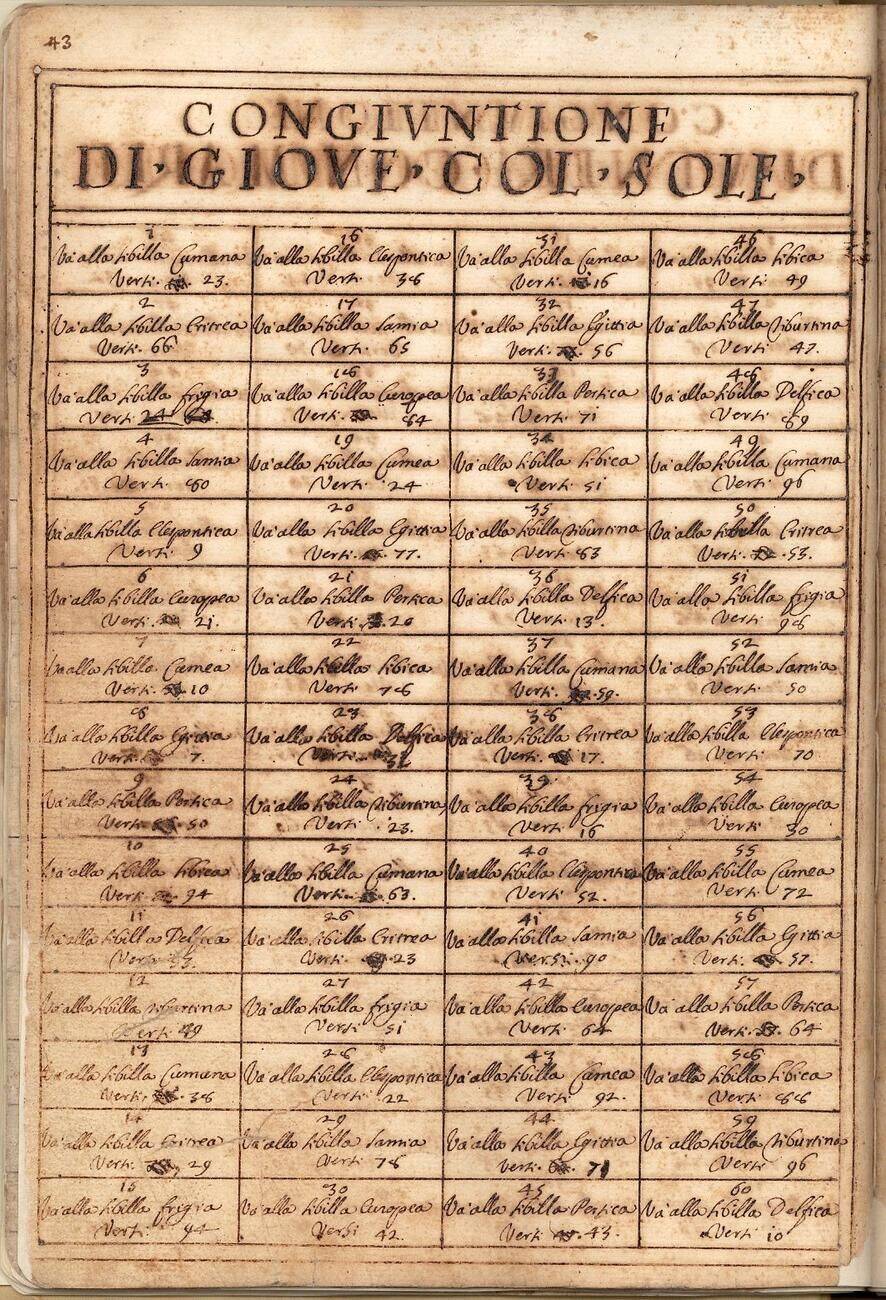 43
CONGIVNTIONE
DI · GIOVE · COL · SOLE ·
1
Va' alla sibilla Cumana
Versi. 23.
2
Va' alla sibilla Eritrea
Versi. 66
3
Va' alla sibilla frigia
Versi
4
Va' alla sibilla Samia
Versi 80
5
Va' alla sibilla Elespontica
Versi 9
6
Va' alla sibilla Europea
Versi. 21.
7
Va' alla sibilla Cumea
Versi. 10
8
Va' alla sibilla Egittia
Versi. 7.
9
Va' alla sibilla Persica
Versi. 50
10
Va' alla sibilla libica
Versi. 94
11
Va' alla sibilla Delfica
Versi
12
Va' alla sibilla Tiburtina
Versi 49
13
Va' alla sibilla Cumana
Versi. 38
14
Va' alla sibilla Eritrea
Versi. 29
15
Va' alla sibilla frigia
Versi. 94
16
Va' alla sibilla Elespontica
Versi 38
17
Va' alla sibilla Samia
Versi. 65
18
Va' alla sibilla Europea
Versi. 84
19
Va' alla sibilla Cumea
Versi. 24
20
Va' alla sibilla Egittia
Versi. 77.
21
Va' alla sibilla Persica
Versi. 20
22
Va' alla sibilla libica
Versi 78
23
Va' alla sibilla Delfica
Versi.
24
Va' alla sibilla Tiburtina
Versi 23.
25
Va' alla sibilla Cumana
Versi. 63.
26
Va' alla sibilla Eritrea
Versi. 23
27
Va' alla sibilla frigia
Versi 51
28
Va' alla sibilla Elespontica
Versi 22
29
Va' alla sibilla Samia
Versi 78
30
Va' alla sibilla Europea
Versi 42.
31
Va' alla sibilla Cumea
Versi. 16
32
Va' alla sibilla Egittia
Versi. 56
33
Va' alla sibilla Persica
Versi. 71
34
Va' alla sibilla libica
Versi. 51
35
Va' alla sibilla Tiburtina
Versi 83
36
Va' alla sibilla Delfica
Versi. 13.
37
Va' alla sibilla Cumana
Versi. 59.
38
Va' alla sibilla Eritrea
Versi. 17.
39.
Va' alla sibilla frigia
Versi 16
40
Va' alla sibilla Elespontica
Versi 52.
41
Va' alla sibilla Samia
Versi. 90
42
Va' alla sibilla Europea
Versi 64
43
Va' alla sibilla Cumea
Versi 92.
44
Va' alla sibilla Egittia
Versi. 71
45
Va' alla sibilla Persica
Versi 43.
46
Va' alla sibilla libica
Versi 49
47
Va' alla sibilla Tiburtina
Versi 47.
48
Va' alla sibilla Delfica
Versi. 89
49
Va' alla sibilla Cumana
Versi. 96
50
Va' alla sibilla Eritrea
Versi. 53.
51
Va' alla sibilla frigia
Versi. 98
52
Va' alla sibilla Samia
Versi 50
53
Va' alla sibilla Elespontica
Versi 70
54
Va' alla sibilla Europea
Versi 30
55
Va' alla sibilla Cumea
Versi 72
56
Va' alla sibilla Egittia
Versi. 57.
57
Va' alla sibilla Persica
Versi. 64
58
Va' alla sibilla libica
Versi 88
59
Va' alla sibilla Tiburtina
Versi 96
60
Va' alla sibilla Delfica
Versi 10